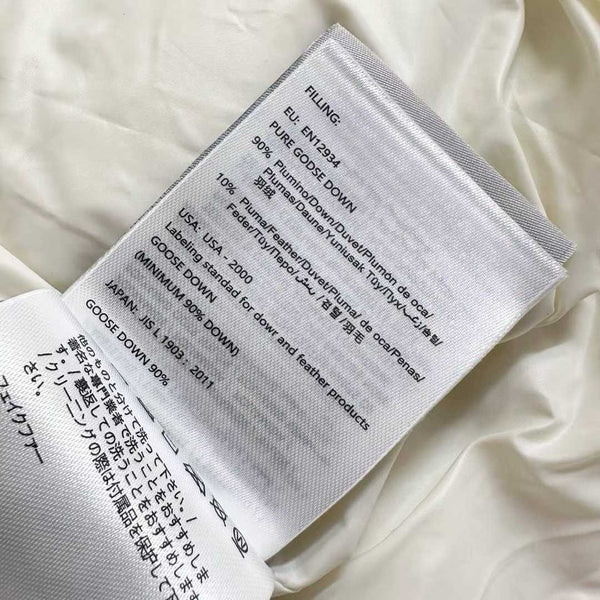 FILLING:
EU: EN12934
PURE GODSE DOWN
90% Plumho/Down/Duvet/Plumón de oca/
Plumas/Daune/Yuniusak Tüy/Пух/زغب/솜털/
羽绒
10% Pluma/Feather/Duvet/Pluma/ de oca/Penas/
Feder/Tüy/Перо/ريش/깃털/羽毛
USA: USA - 2000
Labeling standad for dowr and feather products
GOOSE DOWN
(MINIMUM 90% DOWN)
JAPAN: JIS L 1903 - 2011
GOOSE DOWN 90%
他のものと分けて洗って下さい。/
著名な専門業者で洗うことをおすすめしま
す。/裏返しての洗うことをおすすめします
/クリーニングの際は付属品を保護して下
さい。
フェイクファー